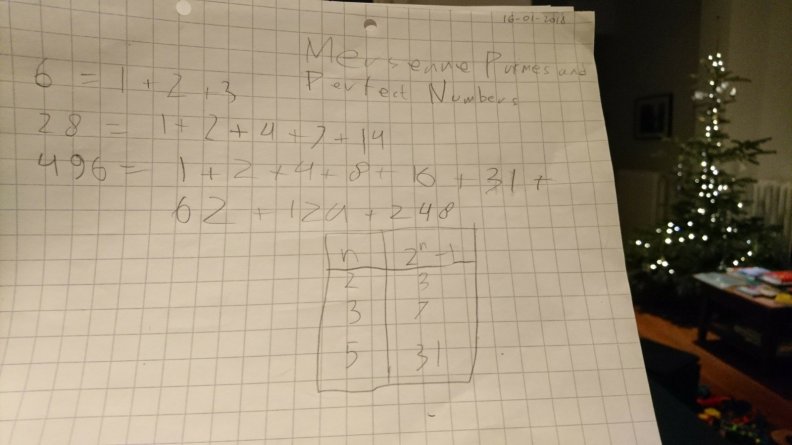 16-01-2018
Mersenne Primes and
Perfect Numbers
6 = 1 + 2 + 3
28 = 1 + 2 + 4 + 7 + 14
496 = 1 + 2 + 4 + 8 + 16 + 31 +
62 + 124 + 248
n 2ⁿ-1
2 3
3 7
5 31